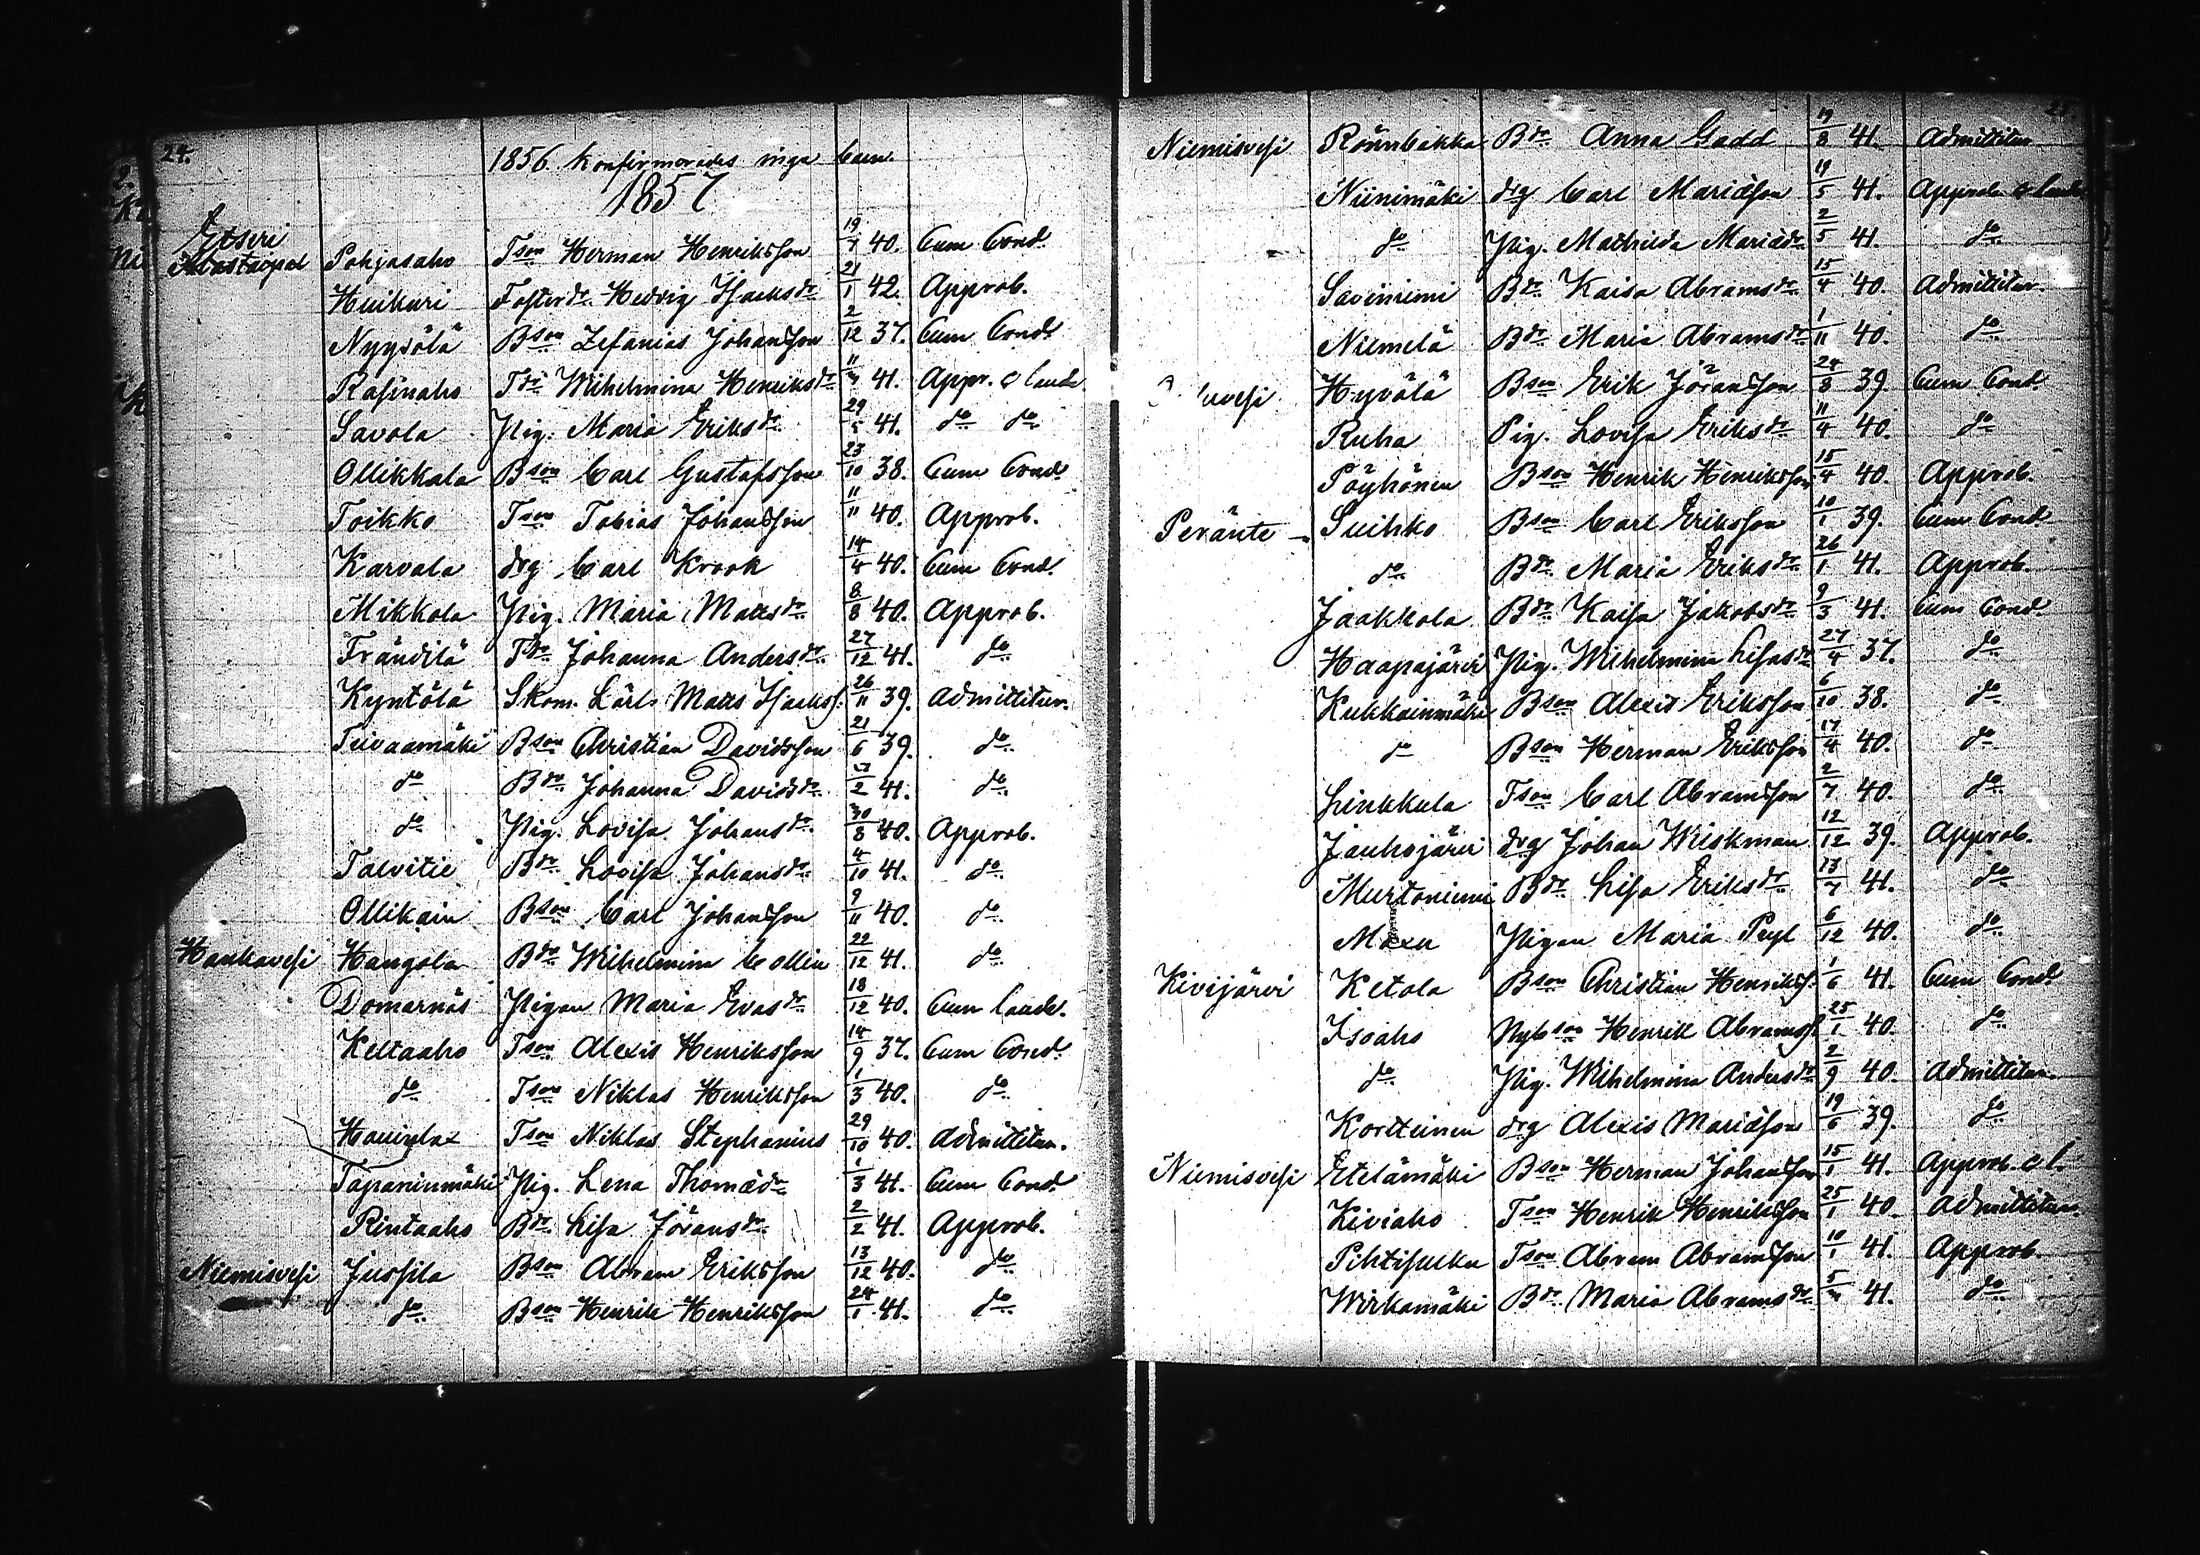 24.
1856 konfirmerades inga barn.
1857
Etseri
Pohjasaho Tson Herman Henriksson 19/7 40. Cum Cond.
Huikuri Fosterdr. Hedvig Isacksdr 21/1 42. Approb.
Nyysölä Bson Zefanias Johansson 2/12 37. Cum Cond.
Rasinaho Tdr Wilhelmina Henriksdr 41. Appr. c laude
Savola Pig. Maria Eriksdr 29/5 41. do do
Ollikkala Bson Carl Gustafsson 23/10 38. Cum Cond.
Toikko Tson Tobias Johansson 11/11 40. Approb.
Karvala drg Carl Krook 14/4 40. Cum Cond.
Mikkola Pig. Maria Mattsdr 8/8 40. Approb.
Frändilä Tdr Johanna Andersdr 27/12 41. do
Kyntölä Skom. Lärl. Matts Isackss. 26/11 39. Admittitur.
Teivaamäki Bson Christian Davidsson 21/6 39. do
do Bdr Johanna Davidsdr 2 41. do
do Pig. Lovisa Johansdr 30/8 40. Approb.
Talvitie Bdr Lovisa Johansdr 4/10 41. do
Ollikain Bson Carl Johansson 9/11 40. do
Hankavesi Hangola Bdr Wilhelmina Collin 22/12 41. do
Domarnäs Pigan Maria Evasdr 18/12 40. Cum laude.
Keltaaho Tson Alexis Henriksson 14/9 37. Cum Cond.
do Tson Niklas Henriksson 1/3 40. do
Tson Niklas Stephanius 29/10 40. Admittitur.
Tapaninmäki Pig. Lena Thomædr 1/3 41. Cum Cond.
Rintaaho Bdr Lisa Jöransdr 2/2 41. Approb.
Niemisvesi Jussila Bson Abram Eriksson 13/12 40. do
do Bson Henrik Henriksson 24/1 41. do
25.
Niemisvesi Rönnbakka Bdr Anna Gadd 8 41. Admittitur
Niinimäki drg Carl Mariæson 5 41. Approb. c laude
do Pig. Mathilda Mariædr 2/5 41. do
Saviniemi Bdr Kaisa Abramsdr 15/4 40. Admittitur.
Niemelä Bdr Maria Abramsdr 1/11 40. do
Hyvölä Bson Erik Jöransson 24/8 39. Cum Cond
Ruha Pig. Lovisa Eriksdr 11/4 40. do
Pöyhönen Bson Henrik Henriksson 15/4 40. Approb.
Peränte Suihko Bson Carl Eriksson 10/1 39. Cum Cond
do Bdr Maria Eriksdr 26/1 41. Approb.
Jaakkola Bdr Kaisa Jakobsdr 9/3 41. Cum Cond.
Haapajärvi Pig. Wilhelmina Lisasdr 27/4 37. do
Kukkainmäki Bson Alexis Eriksson 6/10 38. do
do Bson Herman Eriksson 17/4 40. do
Linkkula Tson Carl Abramsson 2/7 40. do
Jauhojärvi drg Johan Wiskman 12/12 39. Approb.
Murtoniemi Bdr Lisa Eriksdr 13/7 41. do
Pigan Maria Peyl 6/12 40. do
Kivijärvi Ketola Bson Christian Henrikss. 1/6 41. Cum Cond.
Isoaho Nybson Henrik Abramss. 25/1 40. do
do Pig. Wilhelmina Andersdr 2/9 40. Admittitur.
Kortteinen drg Alexis Mariæson 19/6 39. do
Niemisvesi Etelämäki Bson Herman Johansson 15/1 41. Approb. c l.
Kiviaho Tson Henrik Henriksson 25/1 40. Admittitur
Pihtisulku Tson Abram Abramsson 10/1 41. Approb.
Wirkamäki Bdr Maria Abramsdr 5 41. do